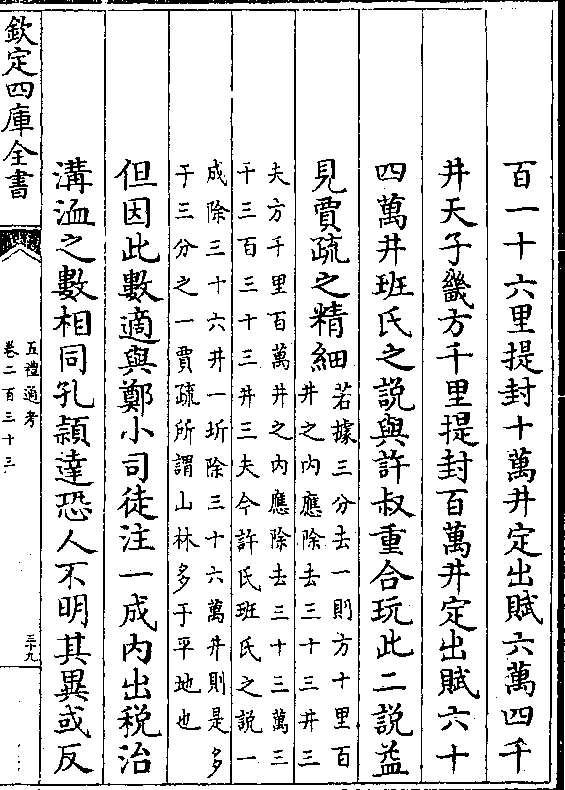 百一十六里提封十萬井定出賦六萬四千
井天子畿方千里提封百萬井定出賦六十
四萬井班氏之說與許叔重合玩此二說益
見賈疏之精細
若據三分去一則方十里百
井之内應除去三十三井三
夫方千里百萬井之内應除去三十三萬三
千三百三十三井三夫今許氏班氏之說一
成除三十六井一圻除三十六萬井則是多
于三分之一賈疏所謂山林多于平地也
但因此數適與鄭小司徒注一成内出税治
溝洫之數相同孔頴達恐人不明其異或反
欽定四庫全書
五禮通考
卷二百三十三
三十九